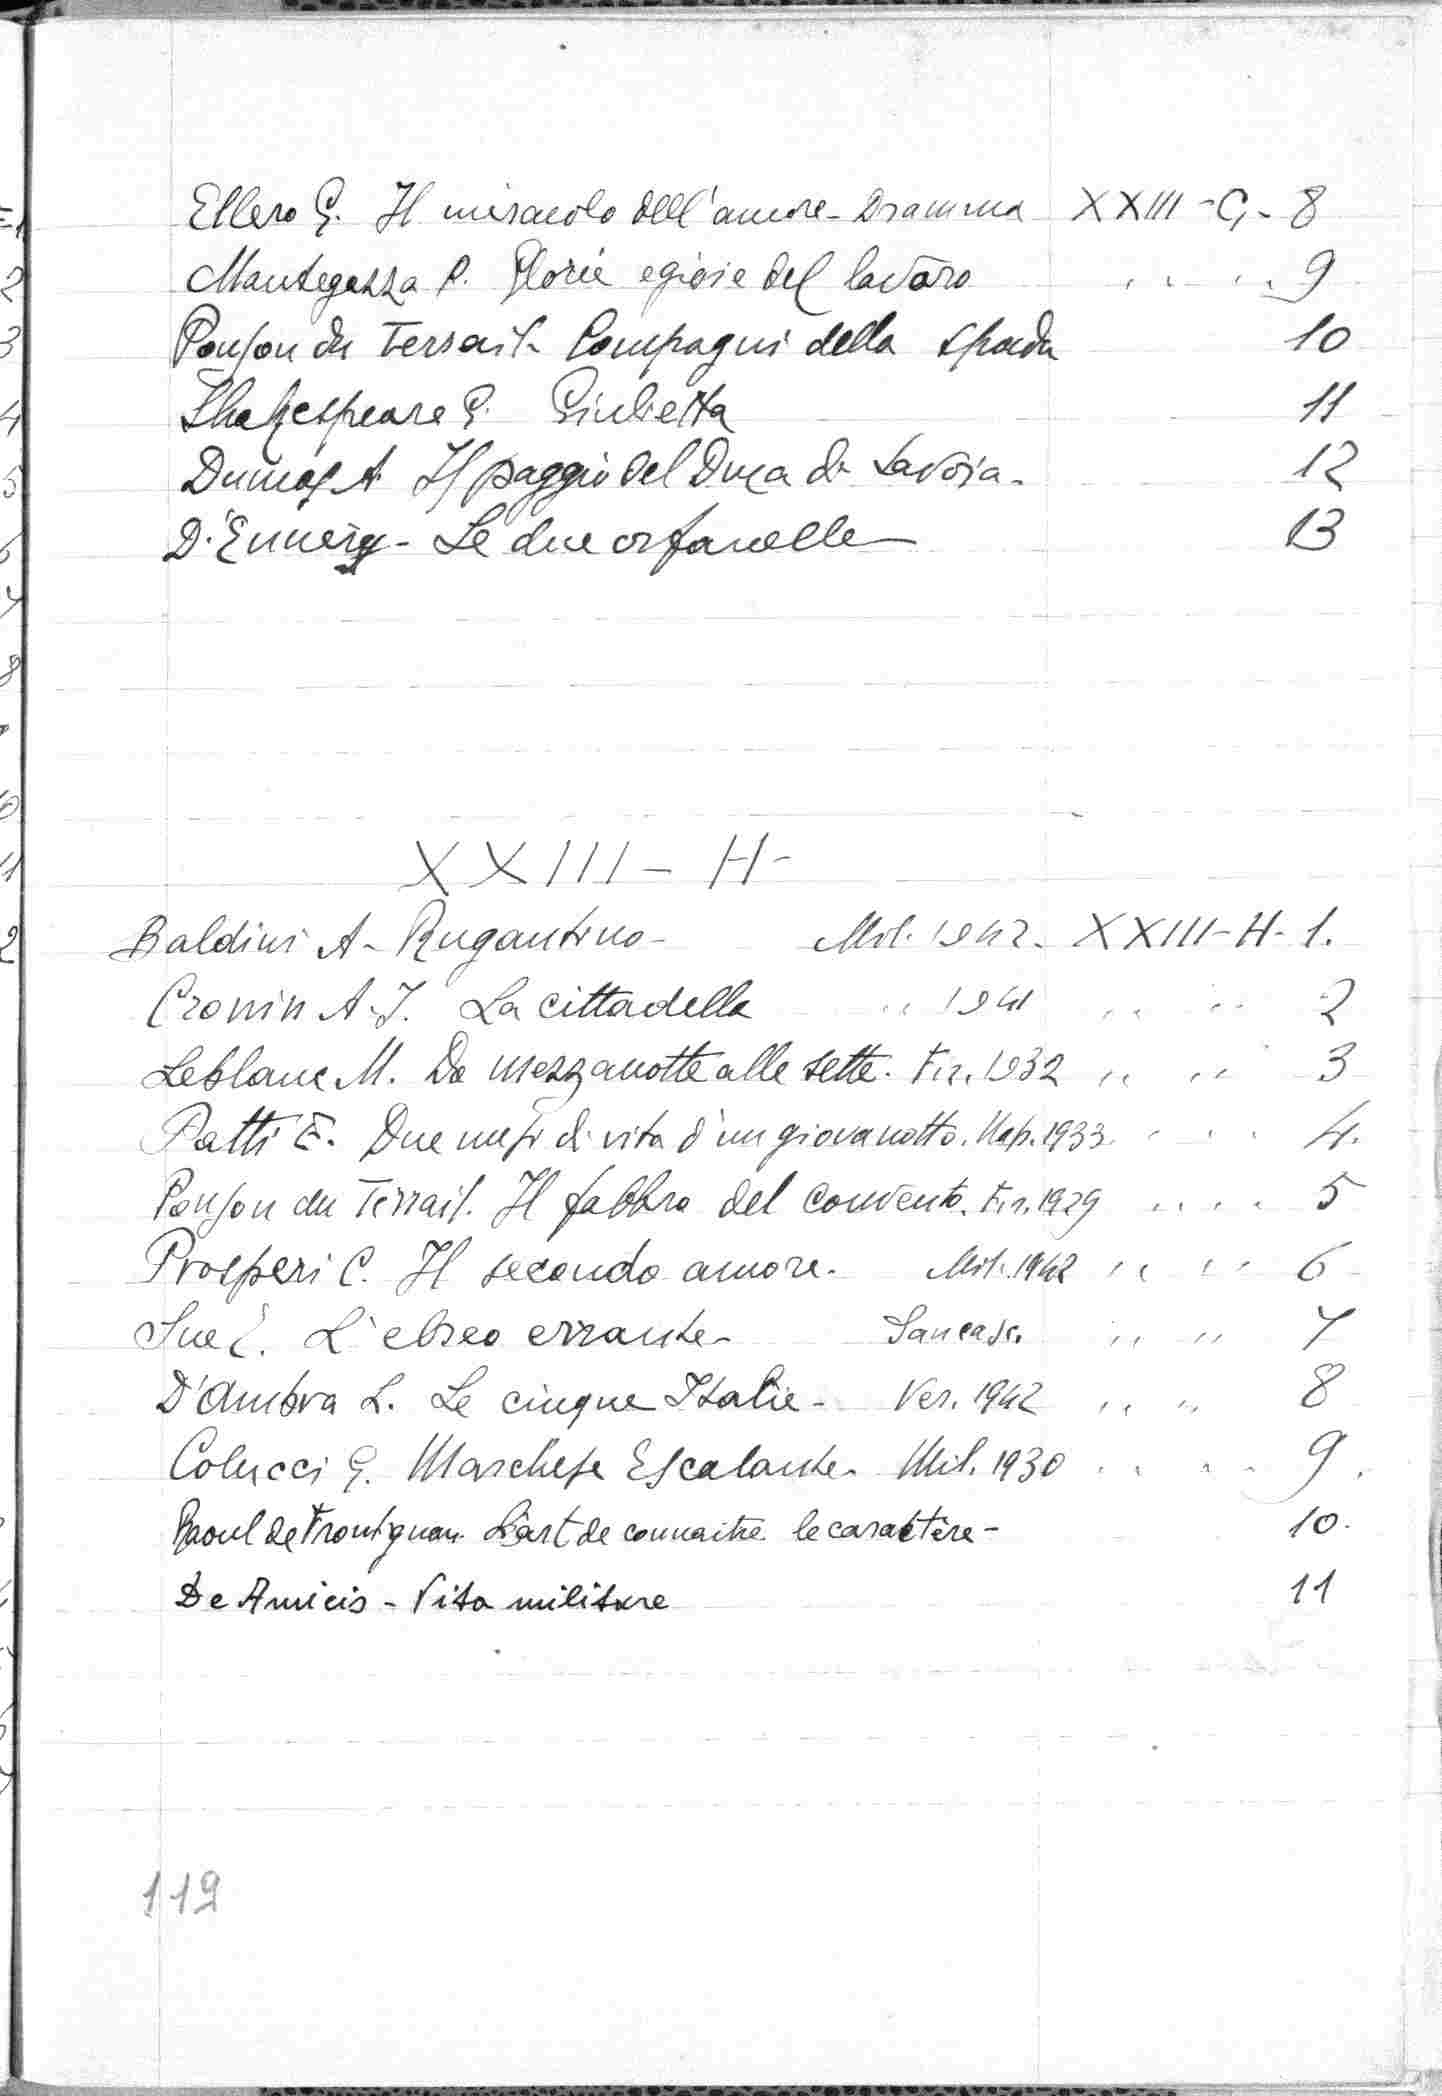 Ellero G. Il miracolo dell'amore - Dramma XXIII - G - 8
Mantegazza P. Glorie e gioie del lavoro " " 9
Ponson du Terrail - Compagni della spada 10
Shakespeare G. Giulietta 11
Dumas A. Il paggio del Duca di Savoia - 12
D'Ennery - Le due orfanelle 13
XXIII - H -
Baldini A - Rugantino - Mil. 1942 - XXIII - H - 1.
Cronin A. J. La cittadella " 1941 " " 2
Leblanc M. Da mezzanotte alle sette. Fir. 1932 " " 3
Patti E. Due mesi di vita d'un giovanotto. Nap. 1933 " " 4.
Ponson du Terrail. Il fabbro del convento. Fir. 1929 " " 5
Prosperi C. Il secondo amore. Mil. 1942 " " 6
Sue E. L'ebreo errante - Sancasc. " " 7
D'Ambra L. Le cinque Italie - Ver. 1942 " " 8
Colucci G. Marchese Escalante. Mil. 1930 " " 9.
Raoul de Frontignan L'art de connaitre le caractère - 10.
De Amicis - Vita militare 11
119